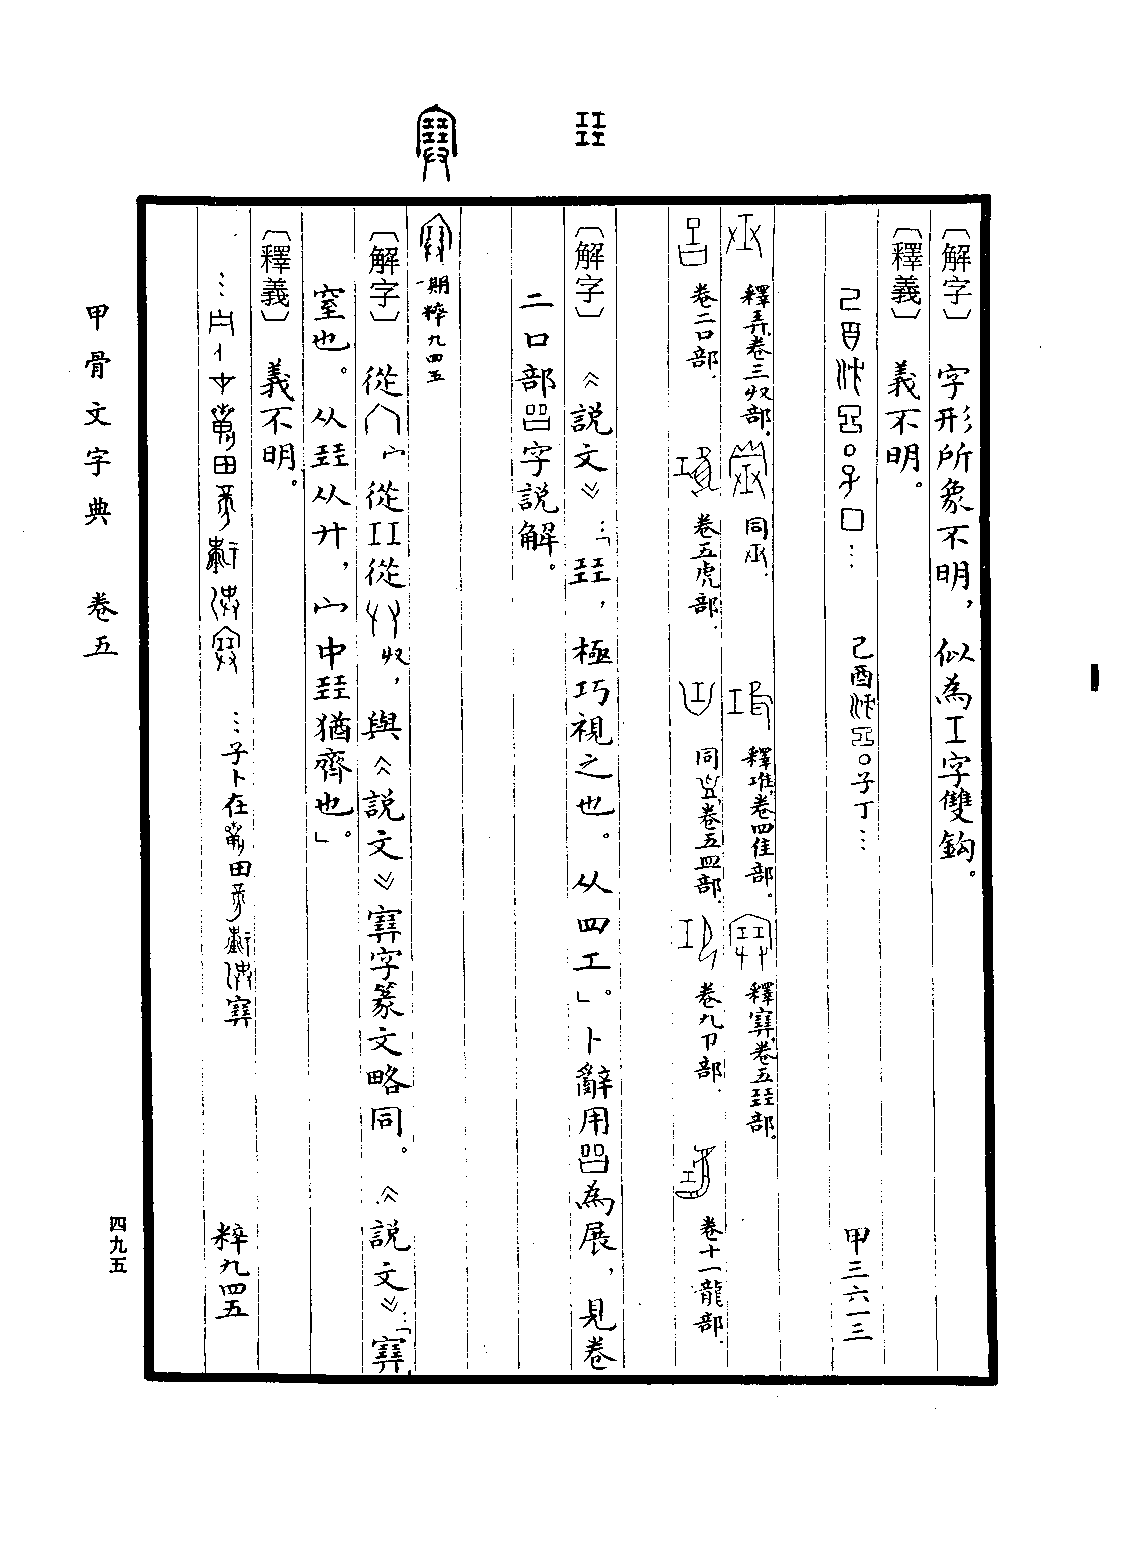 㠭
〔解字〕 字形所象不明，似為工字雙鈎。
〔釋義〕 義不明。
己酉 〇子丁… 甲三六一三
釋弄，卷三収部。 同 釋琟，卷四隹部。 釋𡫳，卷五㠭部。
卷二口部。 卷五虎部。 同 卷五皿部。 卷九卩部。 卷十一龍部。
〔解字〕 《說文》：「㠭，極巧視之也。从四工」。卜辭用 為展，見卷
二口部 字說解。
一期 粹九四五
〔解字〕 從 宀 從 從 収，與《說文》𡫳字篆文略同。《說文》：「𡫳，
窒也。从㠭从廾，宀中㠭猶齊也」。
〔釋義〕 義不明。
…子卜在 田 𡫳 粹九四五
甲骨文字典 卷五
四九五